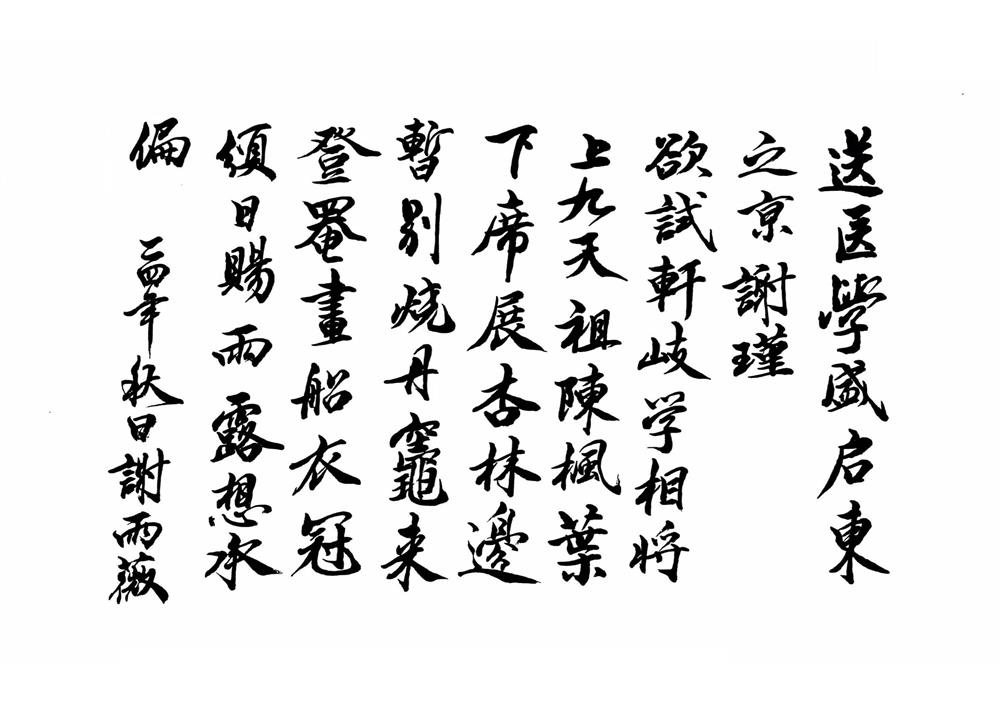 送医學盛启東
之京 謝瑾
欲試軒岐学相将
上九天祖陳楓葉
下席展杏林邊
暫别烧丹竈来
登罨畫船衣冠
須日賜雨露想承
偏 二四年秋日謝雨薇